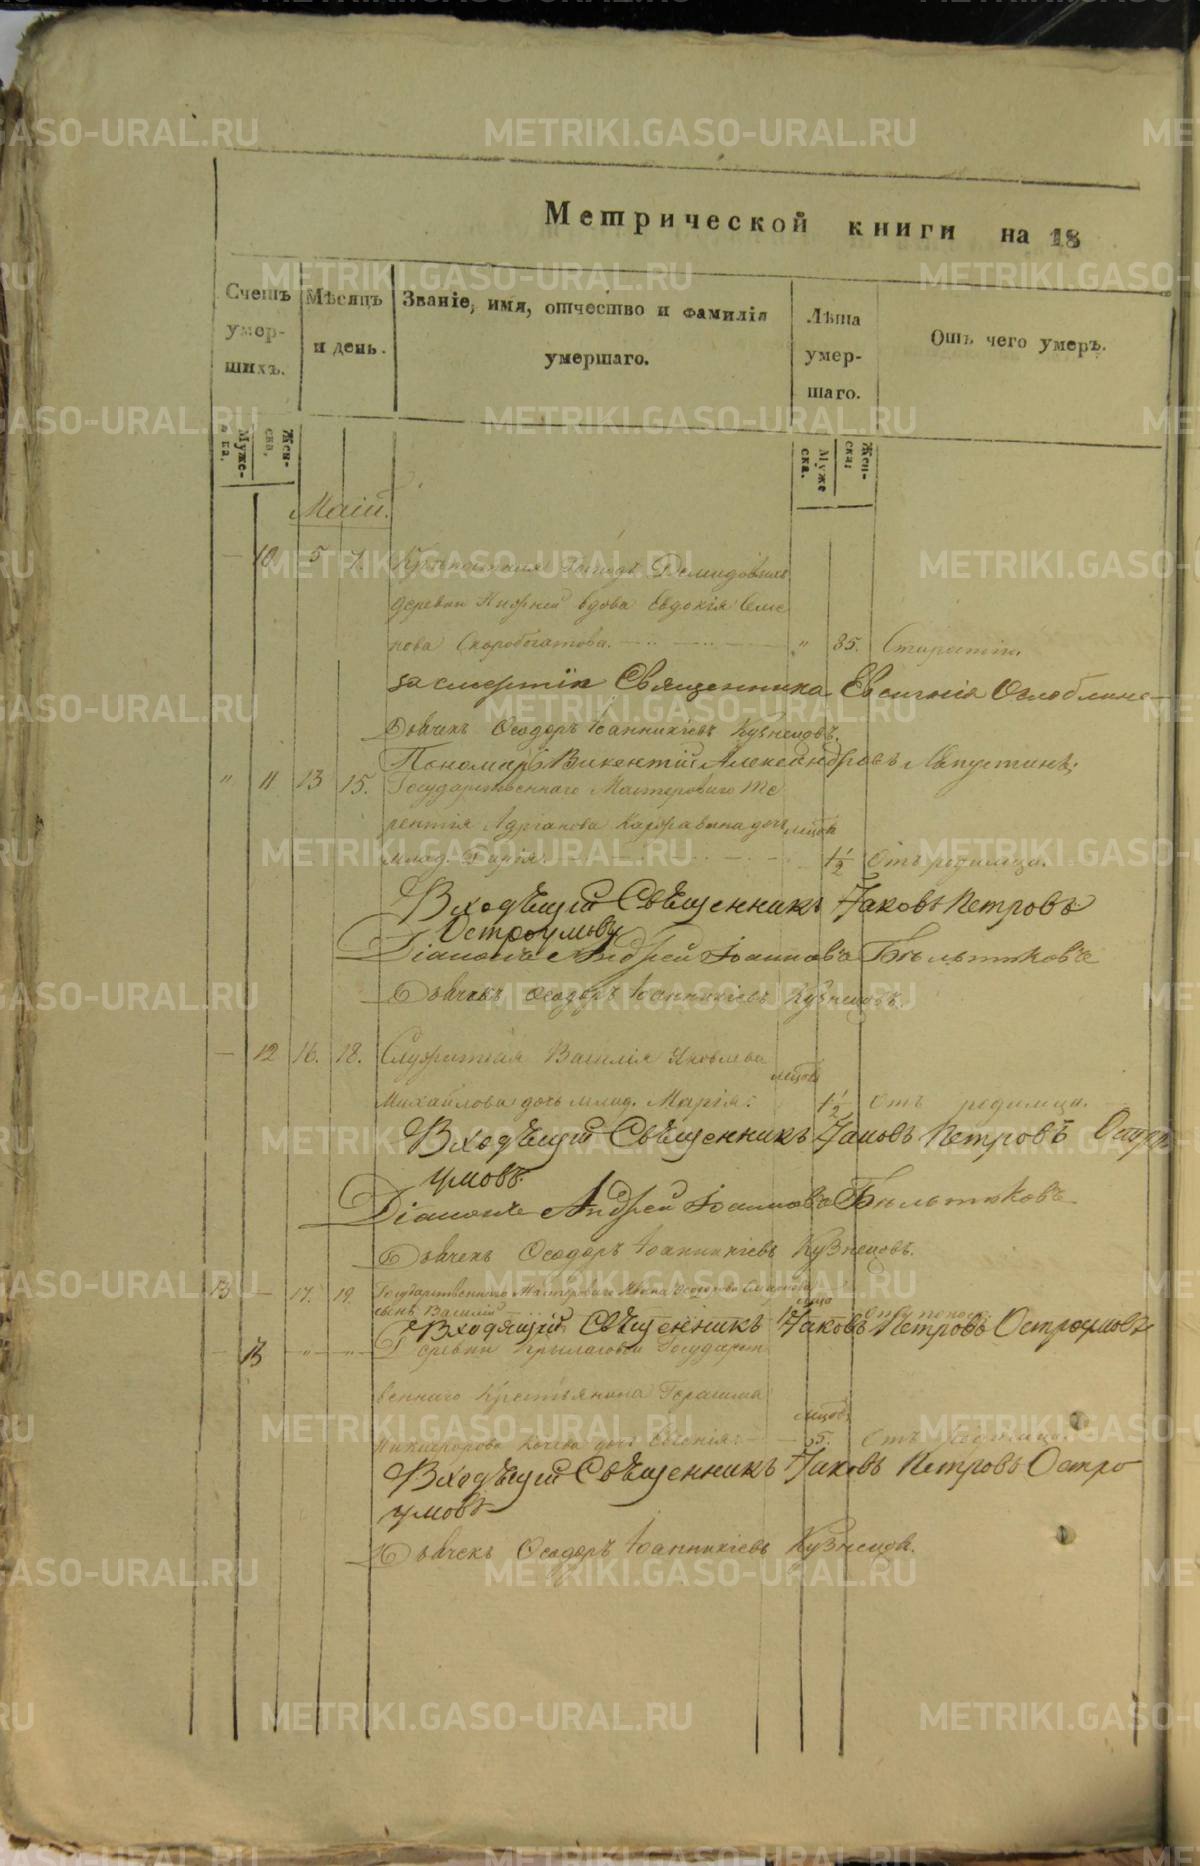 Метрической книги на 18
Счетъ умер- шихъ.
Мѣсяцъ и день.
Званіе, имя, отчество и фамилія умершаго.
Лѣта умер- шаго.
Отъ чего умеръ.
Муже- ска.
Жен- ска.
Муже ска.
Жен- ска.
Маій.
— 10 5 7. Крѣпостная Господъ Демидовыхъ
деревни Нижней вдова Евдокія Семе
нова Скоробогатова. " 85. Старостію.
за смертію Священника Евгенія Оглоблина
Дьячекъ Ѳеодоръ Іоанникіевъ Кузнецовъ.
Пономарь Викентій Александровъ Лапустинъ;
" 11 13 15. Государственнаго Мастероваго Те
рентія Адріанова дочь мѣсяц
млад. Дарія. 1½ Отъ родимца.
Входящій Свѣщенникъ Iаковъ Петровъ
Остроумовъ
Діаконъ Андрей Іоанновъ Бѣльтюковъ
Дьячекъ Ѳеодоръ Іоанникіевъ Кузнецовъ.
— 12 16. 18. Василія Яковлева
Михайлова дочь млад. Марія: 1½ Отъ родимца.
Входящій Свѣщенникъ Iаковъ Петровъ Остро
умовъ.
Діаконъ Андрей Іоанновъ Бѣльтюковъ
Дьячекъ Ѳеодоръ Іоанникіевъ Кузнецовъ.
13 — 17. 19. Государственнаго Мастероваго Ивана Ѳеодорова
сынъ Василій
Входящій Свѣщенникъ Iаковъ Петровъ Остроумовъ
— 13 " " Деревни Государст
веннаго Крестьянина Герасима
Никифорова дочь Евгенія: 5. Отъ родимца.
Входящій Свѣщенникъ Iаковъ Петровъ Остро
умовъ
Дьячекъ Ѳеодоръ Іоанникіевъ Кузнецовъ.
METRIKI.GASO-URAL.RU